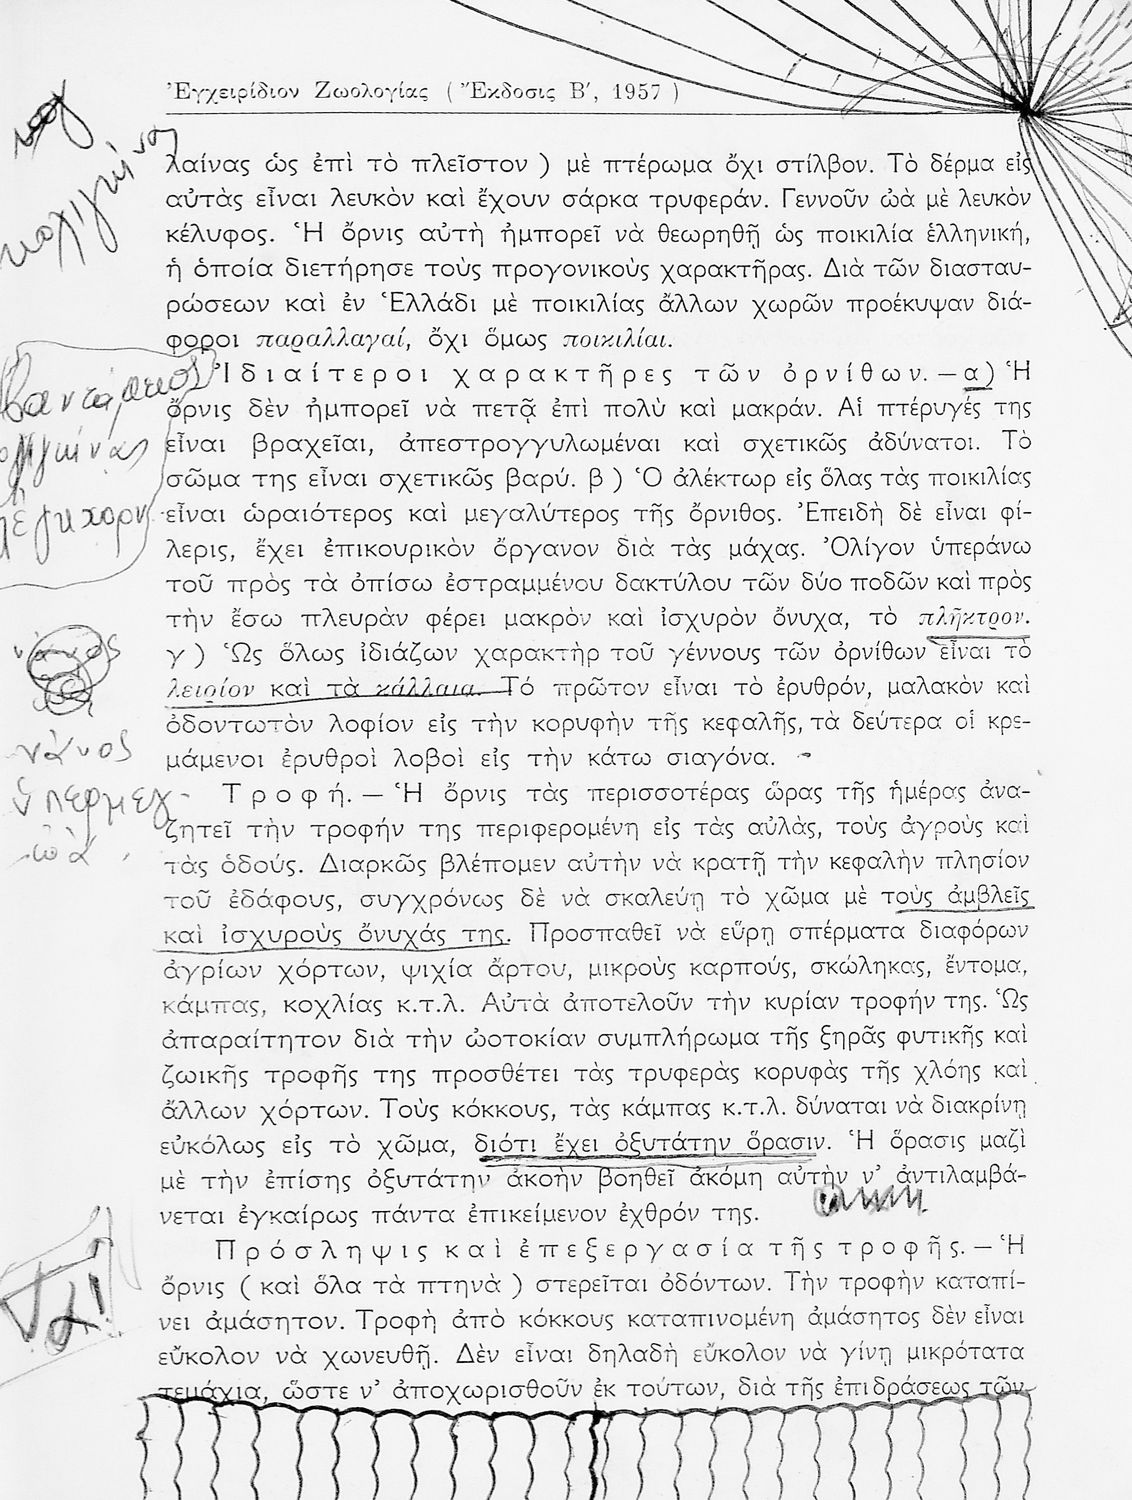 Ἐγχειρίδιον Ζωολογίας ( Ἔκδοσις Β′, 1957 )
λαίνας ὡς ἐπὶ τὸ πλεῖστον ) μὲ πτέρωμα ὄχι στίλβον. Τὸ δέρμα εἰς
αὐτὰς εἶναι λευκὸν καὶ ἔχουν σάρκα τρυφεράν. Γεννοῦν ὠὰ μὲ λευκὸν
κέλυφος. Ἡ ὄρνις αὐτὴ ἠμπορεῖ νὰ θεωρηθῇ ὡς ποικιλία ἑλληνική,
ἡ ὁποία διετήρησε τοὺς προγονικοὺς χαρακτῆρας. Διὰ τῶν διασταυ-
ρώσεων καὶ ἐν Ἑλλάδι μὲ ποικιλίας ἄλλων χωρῶν προέκυψαν διά-
φοροι παραλλαγαί, ὄχι ὅμως ποικιλίαι.
Ἰδιαίτεροι χαρακτῆρες τῶν ὀρνίθων. — α) Ἡ
ὄρνις δὲν ἠμπορεῖ νὰ πετᾷ ἐπὶ πολὺ καὶ μακράν. Αἱ πτέρυγές της
εἶναι βραχεῖαι, ἀπεστρογγυλωμέναι καὶ σχετικῶς ἀδύνατοι. Τὸ
σῶμα της εἶναι σχετικῶς βαρύ. β ) Ὁ ἀλέκτωρ εἰς ὅλας τὰς ποικιλίας
εἶναι ὡραιότερος καὶ μεγαλύτερος τῆς ὄρνιθος. Ἐπειδὴ δὲ εἶναι φί-
λερις, ἔχει ἐπικουρικὸν ὄργανον διὰ τὰς μάχας. Ὀλίγον ὑπεράνω
τοῦ πρὸς τὰ ὀπίσω ἐστραμμένου δακτύλου τῶν δύο ποδῶν καὶ πρὸς
τὴν ἔσω πλευρὰν φέρει μακρὸν καὶ ἰσχυρὸν ὄνυχα, τὸ πλῆκτρον.
γ ) Ὡς ὅλως ἰδιάζων χαρακτὴρ τοῦ γένους τῶν ὀρνίθων εἶναι τὸ
λειρίον καὶ τὰ κάλλαια. Τό πρῶτον εἶναι τὸ ἐρυθρόν, μαλακὸν καὶ
ὀδοντωτὸν λοφίον εἰς τὴν κορυφὴν τῆς κεφαλῆς, τὰ δεύτερα οἱ κρε-
μάμενοι ἐρυθροὶ λοβοὶ εἰς τὴν κάτω σιαγόνα.
νάνος
νάνος
ὑπερμεγ-
ὠὰ
Τροφή. — Ἡ ὄρνις τὰς περισσοτέρας ὥρας τῆς ἡμέρας ἀνα-
ζητεῖ τὴν τροφήν της περιφερομένη εἰς τὰς αὐλάς, τοὺς ἀγροὺς καὶ
τὰς ὁδούς. Διαρκῶς βλέπομεν αὐτὴν νὰ κρατῇ τὴν κεφαλὴν πλησίον
τοῦ ἐδάφους, συγχρόνως δὲ νὰ σκαλεύῃ τὸ χῶμα μὲ τοὺς ἀμβλεῖς
καὶ ἰσχυροὺς ὄνυχάς της. Προσπαθεῖ νὰ εὕρῃ σπέρματα διαφόρων
ἀγρίων χόρτων, ψιχία ἄρτου, μικροὺς καρπούς, σκώληκας, ἔντομα,
κάμπας, κοχλίας κ.τ.λ. Αὐτὰ ἀποτελοῦν τὴν κυρίαν τροφήν της. Ὡς
ἀπαραίτητον διὰ τὴν ὠοτοκίαν συμπλήρωμα τῆς ξηρᾶς φυτικῆς καὶ
ζωικῆς τροφῆς της προσθέτει τὰς τρυφερὰς κορυφὰς τῆς χλόης καὶ
ἄλλων χόρτων. Τοὺς κόκκους, τὰς κάμπας κ.τ.λ. δύναται νὰ διακρίνῃ
εὐκόλως εἰς τὸ χῶμα, διότι ἔχει ὀξυτάτην ὅρασιν. Ἡ ὅρασις μαζὶ
μὲ τὴν ἐπίσης ὀξυτάτην ἀκοὴν βοηθεῖ ἀκόμη αὐτὴν ν’ ἀντιλαμβά-
νεται ἐγκαίρως πάντα ἐπικείμενον ἐχθρόν της.
Πρόσληψις καὶ ἐπεξεργασία τῆς τροφῆς. — Ἡ
ὄρνις ( καὶ ὅλα τὰ πτηνὰ ) στερεῖται ὀδόντων. Τὴν τροφὴν καταπί-
νει ἀμάσητον. Τροφὴ ἀπὸ κόκκους καταπινομένη ἀμάσητος δὲν εἶναι
εὔκολον νὰ χωνευθῇ. Δὲν εἶναι δηλαδὴ εὔκολον νὰ γίνῃ μικρότατα
τεμάχια, ὥστε ν’ ἀποχωρισθοῦν ἐκ τούτων, διὰ τῆς ἐπιδράσεως τῶν